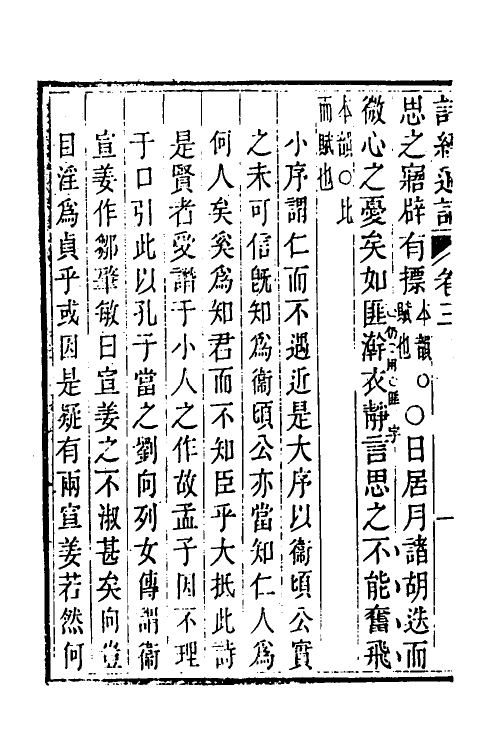 詩經通論 卷三 一
思之寤辟有摽本韻。賦也○日居月諸胡迭而
微心之憂矣如匪澣衣仍用匪字靜言思之不能奮飛
本韻○比而賦也
小序謂仁而不遇近是大序以衞頃公實
之未可信旣知爲衞頃公亦當知仁人爲
何人矣奚爲知君而不知臣乎大抵此詩
是賢者受譖于小人之作故孟子因不理
于口引此以孔子當之劉向列女傳謂衞
宣姜作鄒肇敏曰宣姜之不淑甚矣向豈
目淫爲貞乎或因是疑有兩宣姜若然何